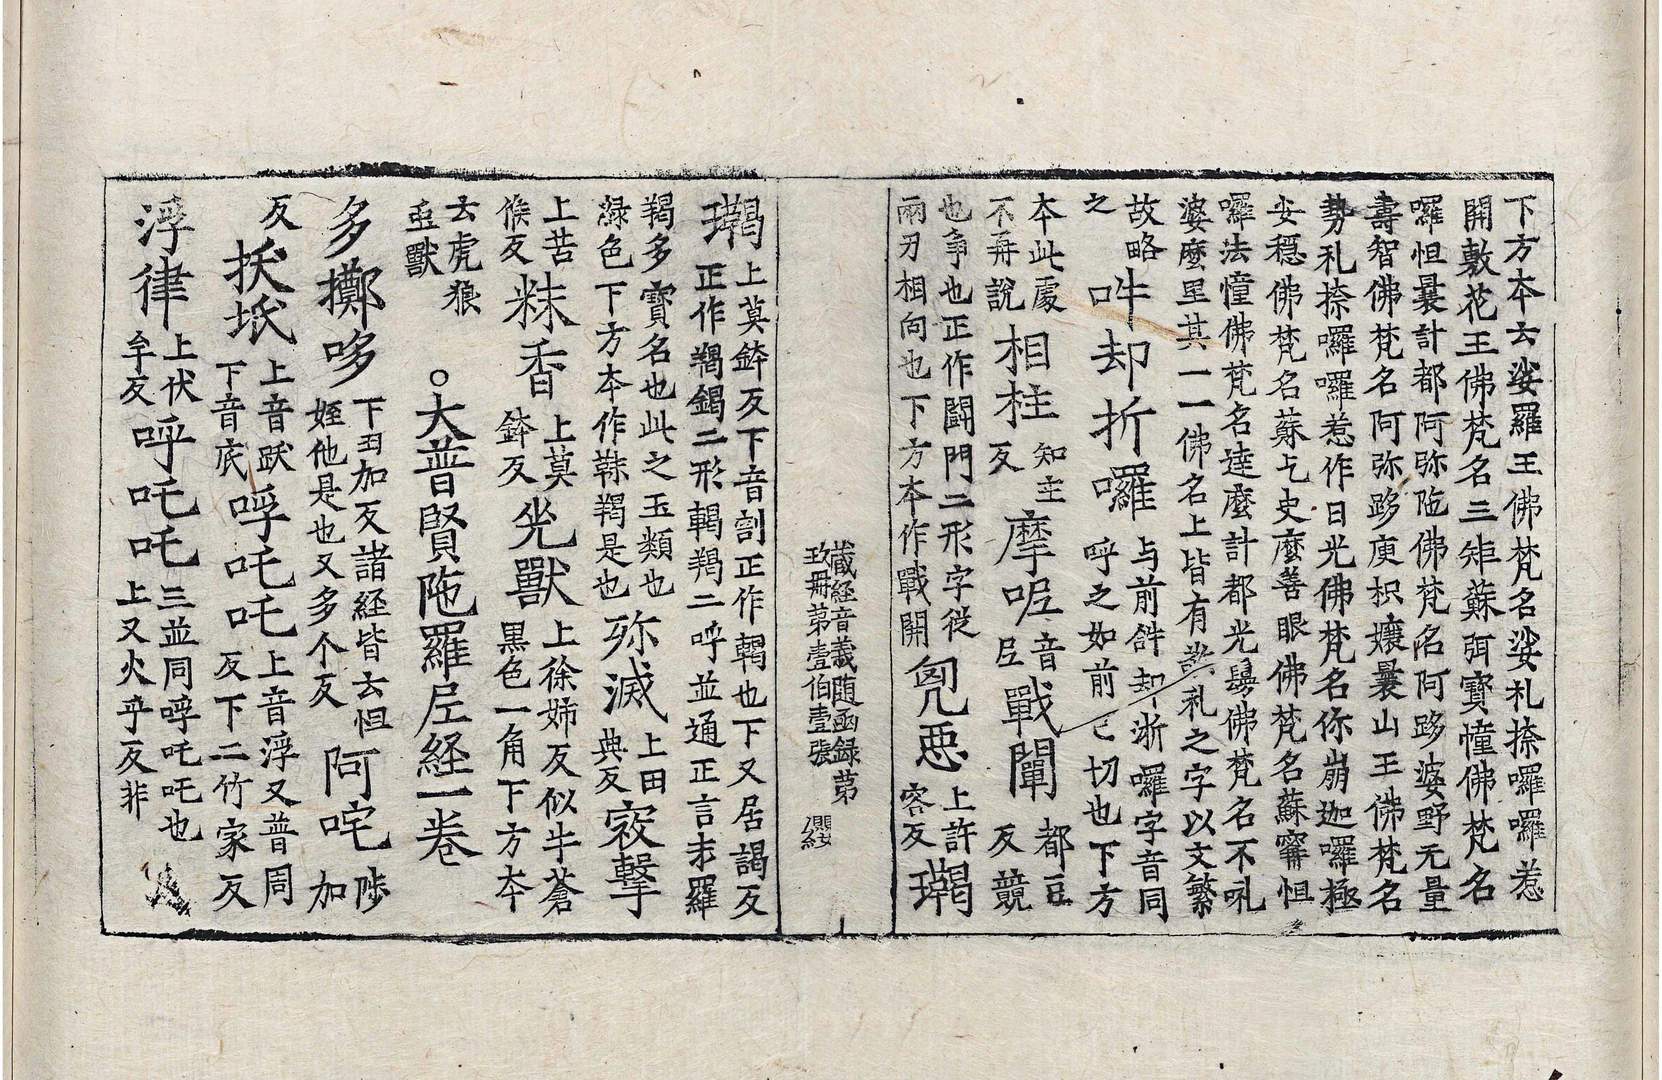 下方夲云娑羅王佛梵名娑札捺囉囉惹
開敷花王佛梵名三矩蘇弭寶幢佛梵名
囉怛曩計都阿弥陁佛梵名阿跢婆野无量
壽智佛梵名阿弥跢庾枳孃曩山王佛梵名
勢札捺囉囉惹作日光佛梵名你崩迦囉極
安穩佛梵名蘇乞史麼善眼佛梵名蘇甯怛
囉法幢佛梵名達麼計都光鬘佛梵名不吼
婆麼里其一一佛名上皆有札之字以文繁
故略之吽却折囉与前䛐却浙囉字音同呼之如前已切也下方
夲此處不再說相柱知主反摩呢音𡰱戰闡都豆反競
也争也正作闘鬥二形字從兩丮相向也下方夲作戰開兇惡上許容反𤨒
藏経音義随函録第
玖冊第壹伯壹張
纓
𤨒上莫鉢反下音割正作𩎟也下又居謁反正作羯鍚二形𩎟羯二呼並通正言末羅
羯多寶名也此之玉類也渌色下方夲作靺羯是也殄滅上田典反㝡擊
上苦候反粖香上莫鉢反兕獸上徐姉反似牛蒼黑色一角下方夲
云虎狼𢙣獸　○大普賢陁羅尼経一卷
多擲哆下丑加反諸経皆云怛姪他是也又多个反阿咤陟加
反扷坁上音跃下音底呼吒吒上音浮又普周反下二竹家反
浮律上伏牟反呼吒吒三並同呼吒吒也上又火乎反非